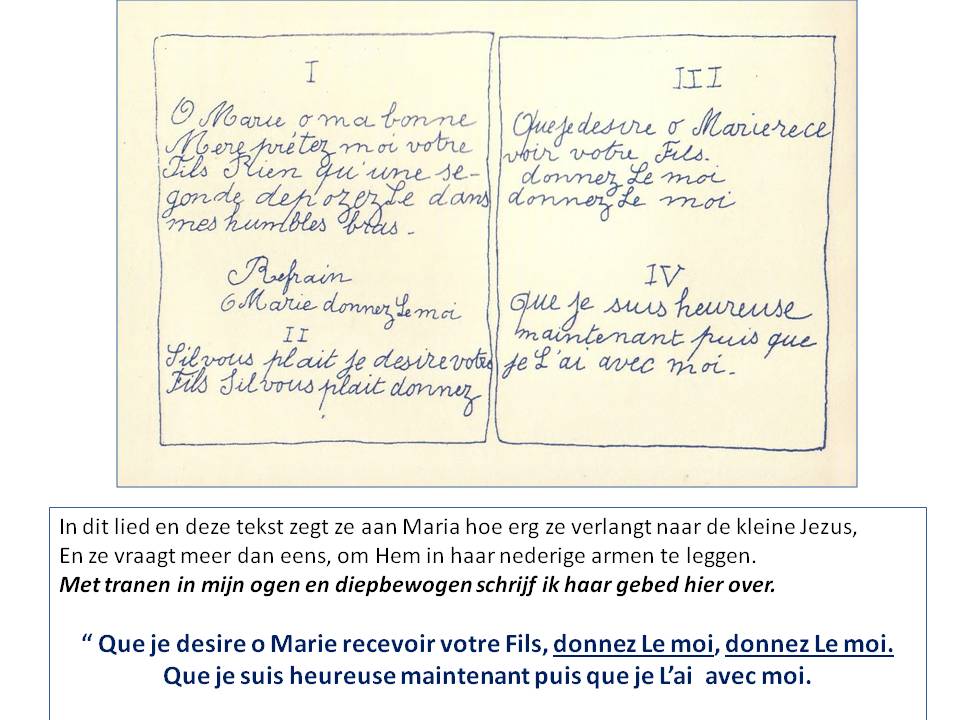 I
O Marie o ma bonne
Mere prétez moi votre
Fils Rien qu'une se-
gonde depozez Le dans
mes humbles bras -
Refrain
O Marie donnez Le moi
II
Silvous plait je desire votre
Fils Silvous plait donnez
III
Que je desire o Marie rece
voir votre Fils.
donnez Le moi
donnez Le moi
IV
Que je suis heureuse
maintenant puis que
je L'ai avec moi.
In dit lied en deze tekst zegt ze aan Maria hoe erg ze verlangt naar de kleine Jezus,
En ze vraagt meer dan eens, om Hem in haar nederige armen te leggen.
Met tranen in mijn ogen en diepbewogen schrijf ik haar gebed hier over.
“ Que je desire o Marie recevoir votre Fils, donnez Le moi, donnez Le moi.
Que je suis heureuse maintenant puis que je L’ai avec moi.